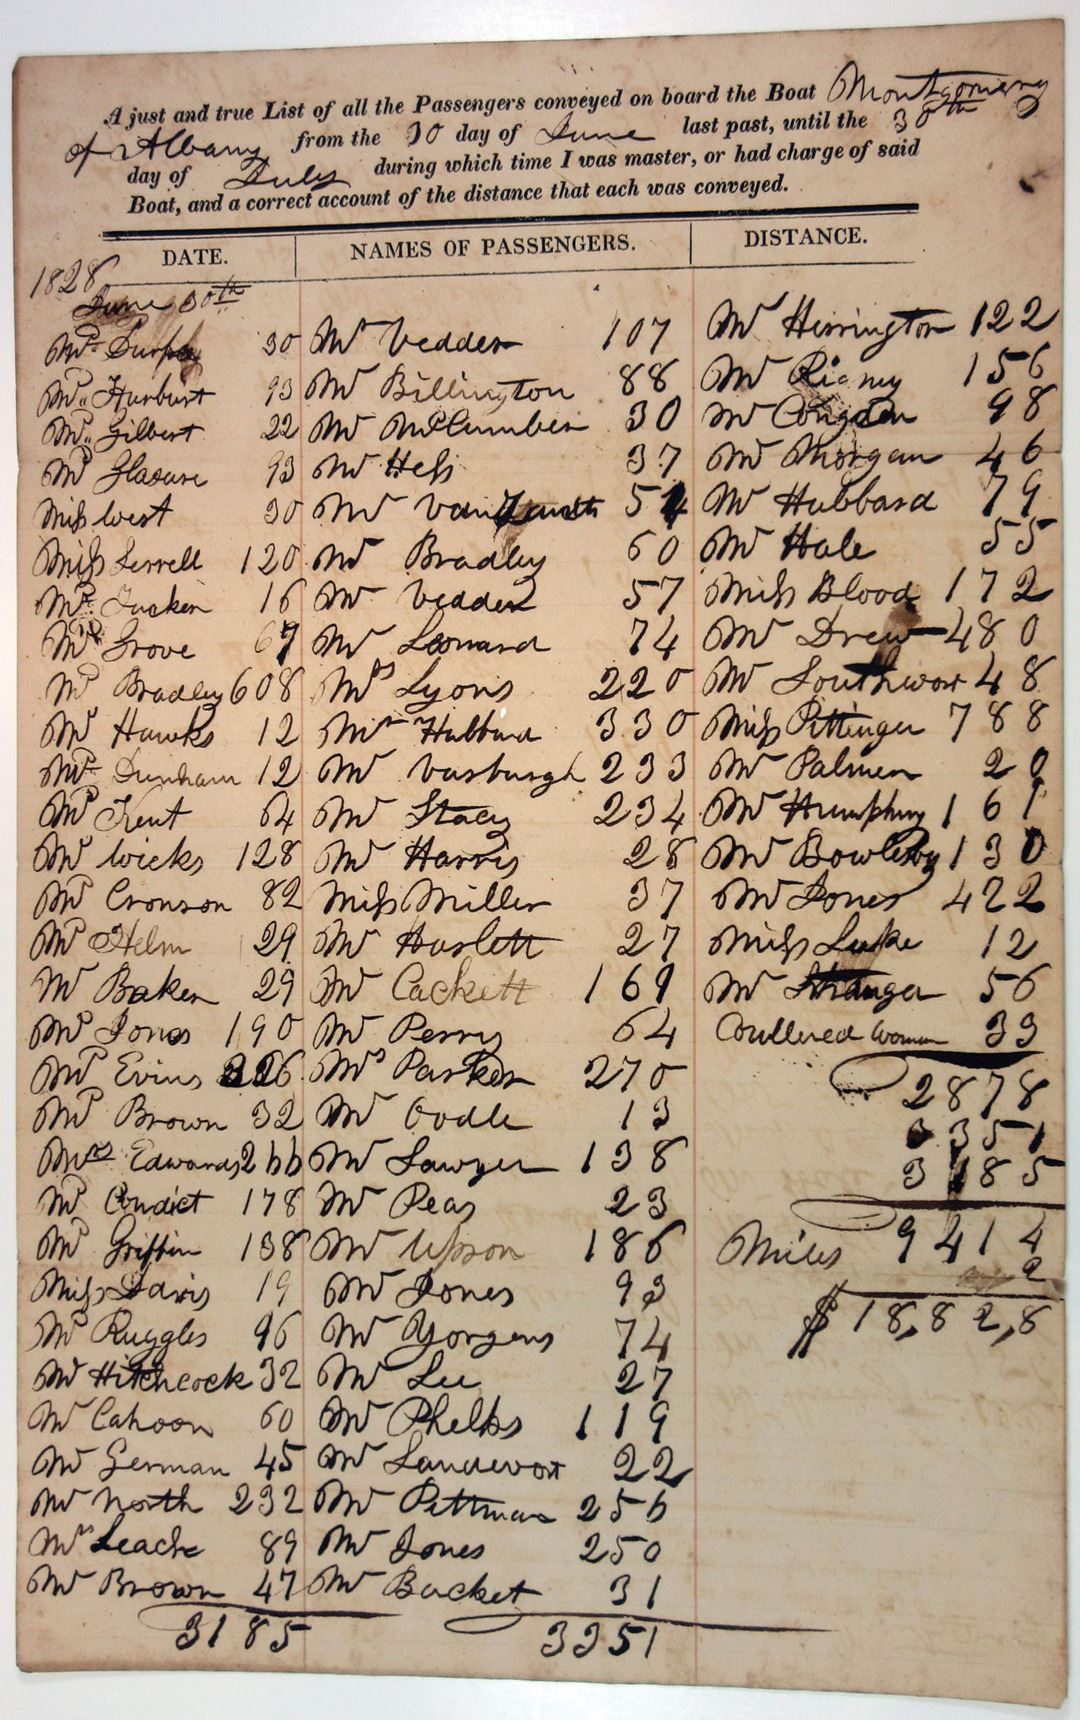 A just and true List of all the Passengers conveyed on board the Boat Montgomery
of Albany from the 30 day of June last past, until the 30th
day of July during which time I was master, or had charge of said
Boat, and a correct account of the distance that each was conveyed.
DATE. NAMES OF PASSENGERS. DISTANCE.
1828
June 30th
Mr. Durphy 30
Mr. Hurburt 93
Mr. Gilbert 22
Mr 93
Miss West 30
Miss Serrell 120
Mr. Tucker 16
Mr. Grove 67
Mr Bradley 608
Mr Hawks 12
Mr. Dunham 12
Mr Kent 64
Mr Wicks 128
Mr Cronson 82
Mr Helm 29
Mr Baker 29
Mr Jones 190
Mr Evins 326
Mr Brown 32
Mrs Edwards 266
Mr Condict 178
Mr Griffin 138
Miss Davis 19
Mr Ruggles 96
Mr Hitchcock 32
Mr Cahoon 60
Mr German 45
Mr North 232
Mrs Leach 89
Mr Brown 47
3185
Mr Vedder 107
Mr Billington 88
Mr McCumber 30
Mr Hess 37
Mr VanZandt 54
Mr Bradley 60
Mr Vedder 57
Mr Leonard 74
Mrs Lyons 220
Mr Hubbard 330
Mr Vosburgh 233
Mr Stacy 234
Mr Harris 28
Miss Miller 37
Mr Haslett 27
Mr Cackett 169
Mr Perry 64
Mrs Parker 270
Mr Oodle 13
Mr Sawyer 138
Mr Peas 23
Mr Upson 186
Mr Jones 93
Mr Yorgens 74
Mr Lee 27
Mr Phelps 119
Mr Landevort 22
Mr Pittman 256
Mr Jones 250
Mr Backet 31
3351
Mr Herrington 122
Mr Rigney 156
Mr Congden 98
Mr Morgan 46
Mr Hubbard 79
Mr Hale 55
Miss Blood 172
Mr Drew 480
Mr Southwort 48
Miss Pittinger 788
Mr Palmer 20
Mr Humphry 161
Mr Bowlesby 130
Mr Jones 422
Miss Luke 12
Mr Stranger 56
Coullered Woman 33
2878
3351
3185
Miles 9414
2
$18,82,8